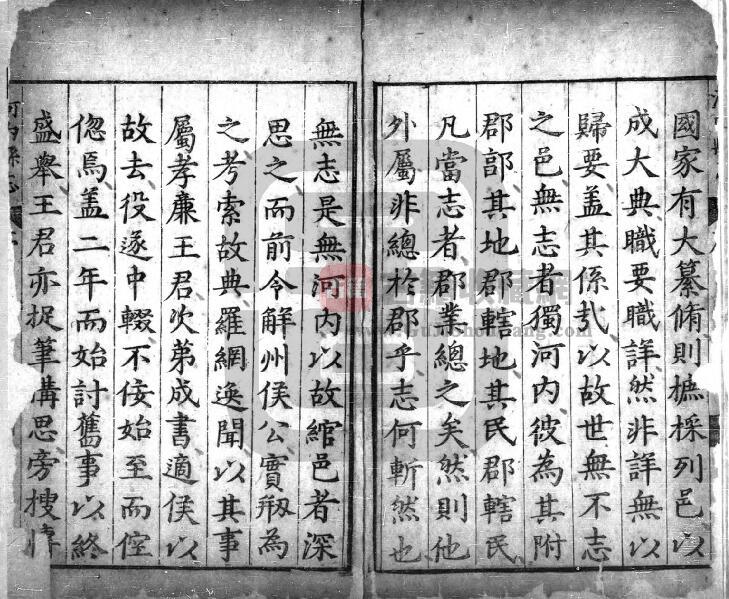 國家有大纂脩則摭採列邑以
成大典職要職詳然非詳無以
歸要盖其係㢤以故世無不志
之邑無志者獨河内彼為其附
郡郭其地郡轄地其民郡轄民
凡當志者郡業總之矣然則他
外屬非總於郡乎志何斬然也
無志是無河内以故綰邑者深
思之而前令解州侯公實剏為
之考索故典羅網逸聞以其事
屬孝亷王君次第成書適侯以
故去役遂中輟不佞始至而倥
偬焉盖二年而始討舊事以終
盛舉王君亦捉筆搆思旁搜
河内縣志